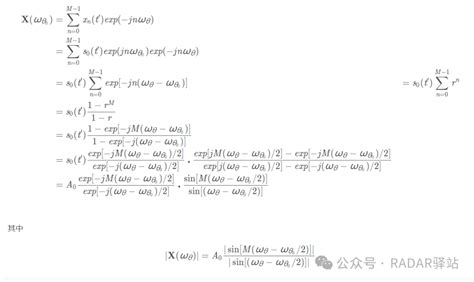 X(ω_{θ_t}) = \sum_{n=0}^{M-1} x_n(t')exp(-jnω_θ)
= \sum_{n=0}^{M-1} s_0(t')exp(jnω_{θ_t})exp(-jnω_θ)
= s_0(t') \sum_{n=0}^{M-1} exp[-jn(ω_θ - ω_{θ_t})] = s_0(t') \sum_{n=0}^{M-1} r^n
= s_0(t') \frac{1-r^M}{1-r}
= s_0(t') \frac{1-exp[-jM(ω_θ-ω_{θ_t})]}{1-exp[-j(ω_θ-ω_{θ_t})]}
= s_0(t') \frac{exp[-jM(ω_θ-ω_{θ_t})/2]}{exp[-j(ω_θ-ω_{θ_t})/2]} • \frac{exp[jM(ω_θ-ω_{θ_t})/2]-exp[-jM(ω_θ-ω_{θ_t})/2]}{exp[j(ω_θ-ω_{θ_t})/2]-exp[-j(ω_θ-ω_{θ_t})/2]}
= A_0 \frac{exp[-jM(ω_θ-ω_{θ_t})/2]}{exp[-j(ω_θ-ω_{θ_t})/2]} • \frac{sin[M(ω_θ-ω_{θ_t}/2)]}{sin[(ω_θ-ω_{θ_t}/2)]}
其中
|X(ω_θ)| = A_0 \frac{|sin[M(ω_θ-ω_{θ_t}/2)]|}{|sin[(ω_θ-ω_{θ_t}/2)]|}
公众号 · RADAR驿站